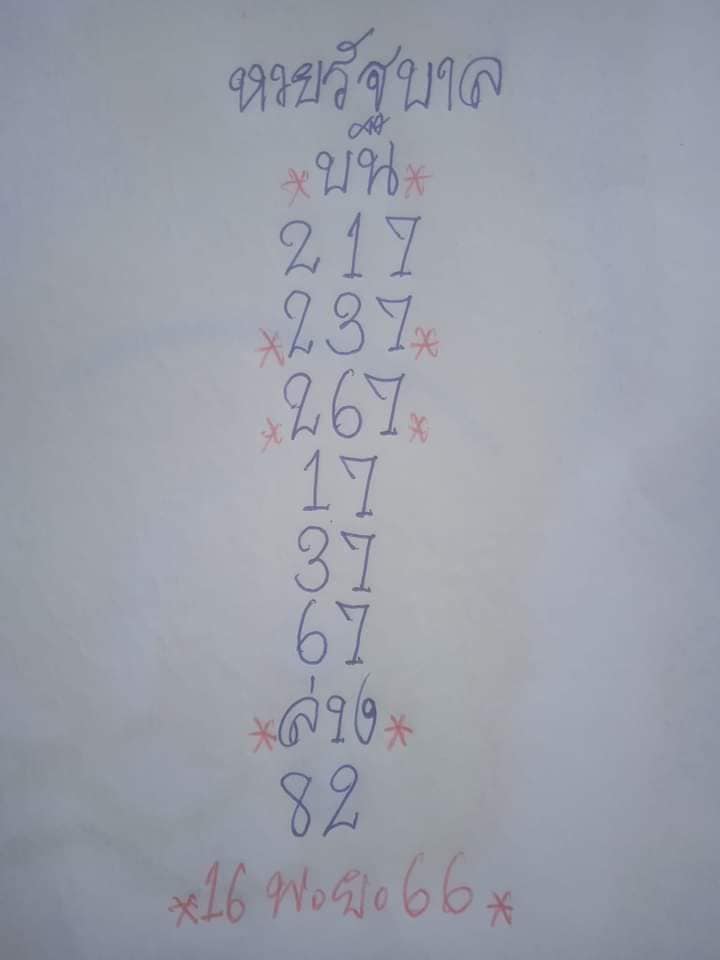 หวยรัฐบาล
*บน*
217
*237*
*267*
17
37
67
*ล่าง*
82
*16 พ.ย.66*